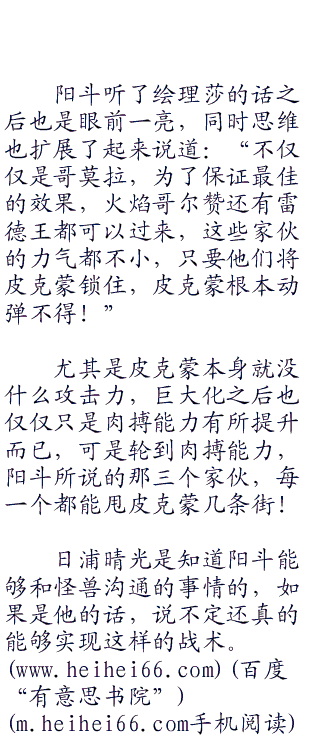 阳斗听了绘理莎的话之
后也是眼前一亮，同时思维
也扩展了起来说道：“不仅
仅是哥莫拉，为了保证最佳
的效果，火焰哥尔赞还有雷
德王都可以过来，这些家伙
的力气都不小，只要他们将
皮克蒙锁住，皮克蒙根本动
弹不得！”
尤其是皮克蒙本身就没
什么攻击力，巨大化之后也
仅仅只是肉搏能力有所提升
而已，可是轮到肉搏能力，
阳斗所说的那三个家伙，每
一个都能甩皮克蒙几条街！
日浦晴光是知道阳斗能
够和怪兽沟通的事情的，如
果是他的话，说不定还真的
能够实现这样的战术。
(www.heihei66.com)(百度
“有意思书院”)
(m.heihei66.com手机阅读)